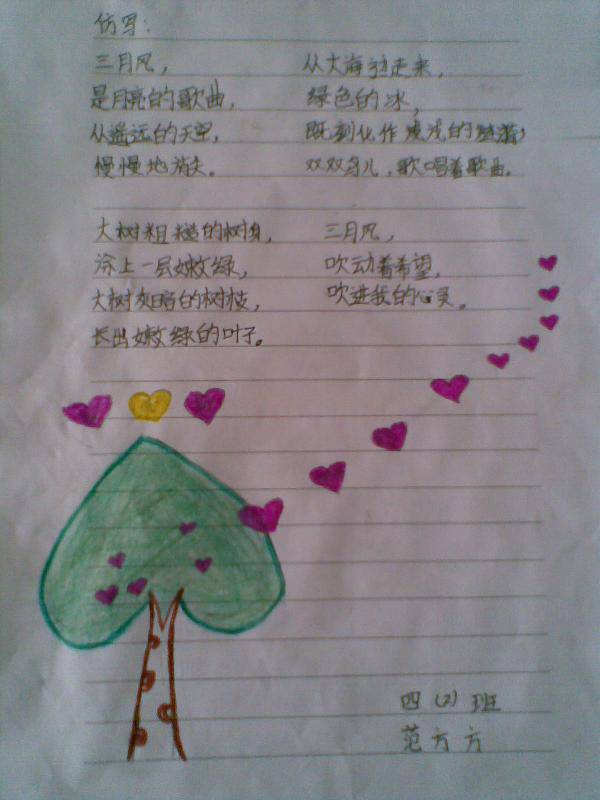 仿写:
三月风,
是月亮的歌曲,
从遥远的天空,
慢慢地消失。
从大海边走来,
绿色的冰,
既刻化作 浅浅的
双双鸟儿,歌唱着歌曲。
大树粗糙的树身,
涂上一层嫩绿,
大树灰暗的树枝,
长出嫩绿的叶子。
三月风,
吹动着希望,
吹进我的心灵。
四(2)班
范方方